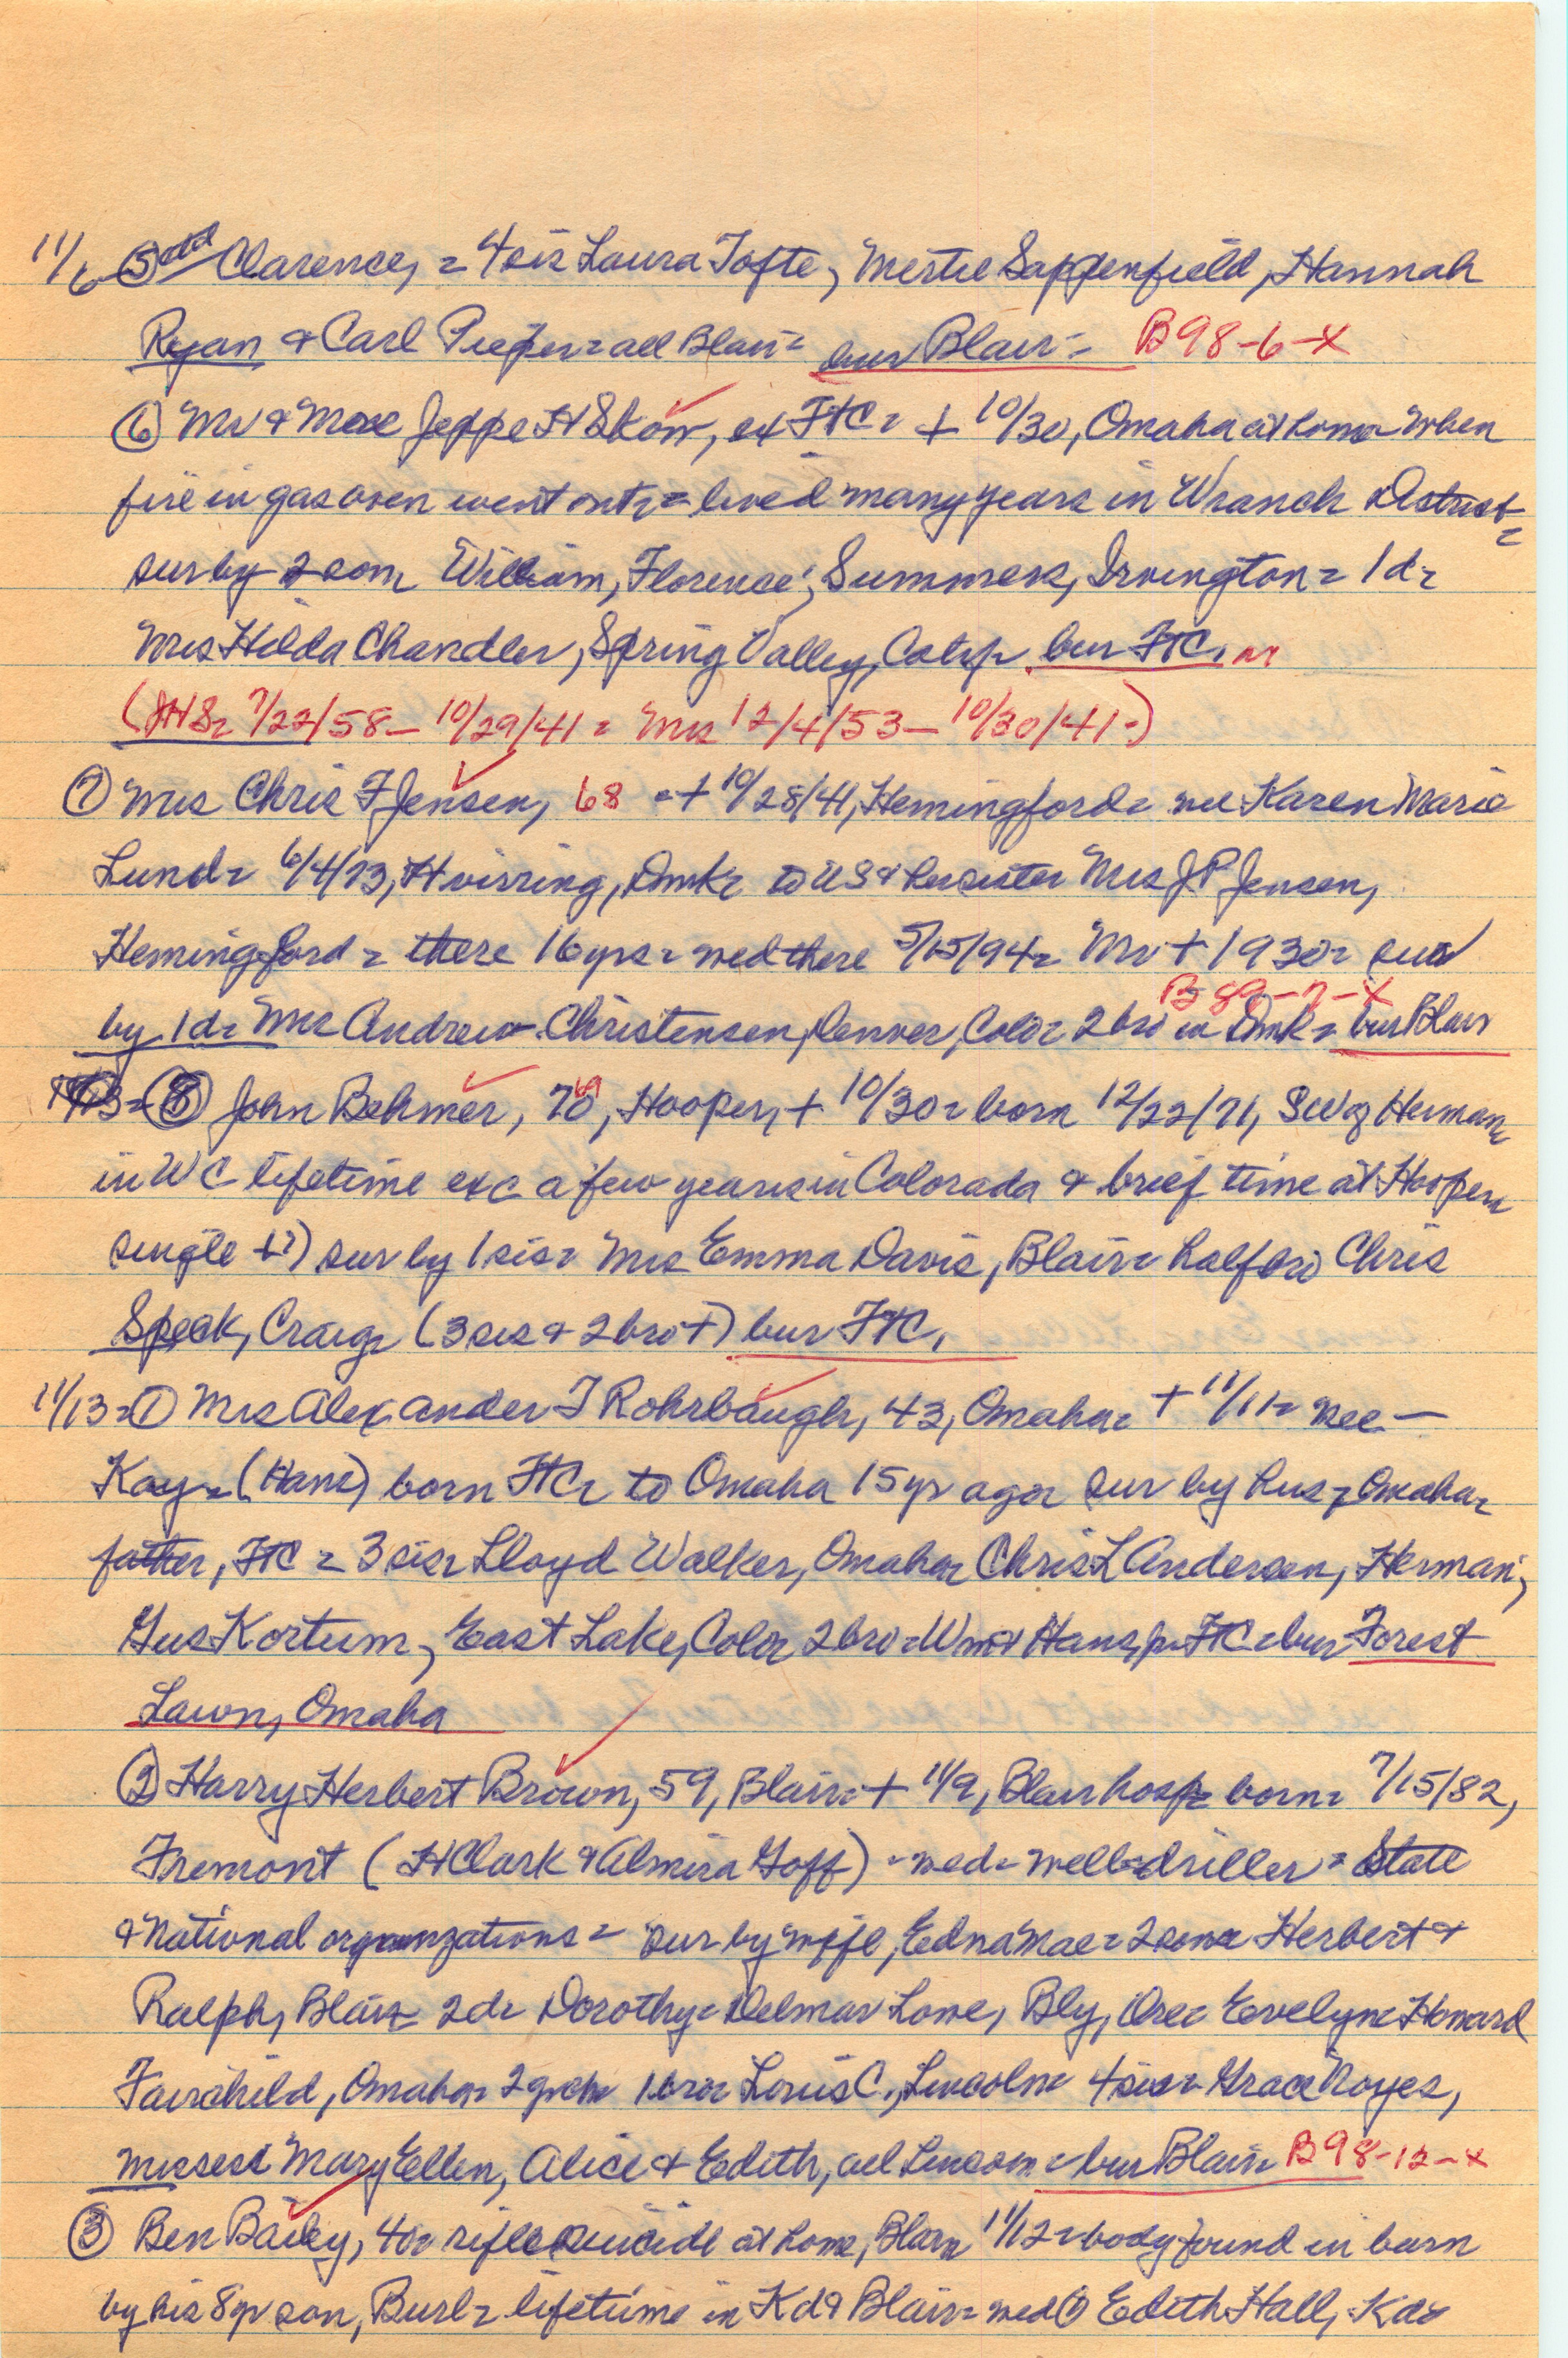 11/6 ⑤ add Clarence, = 4 sis Laura Tofte, Mertie Sappenfield, Hannah
Ryan & Carl Pieper = all Blair = bur Blair = B98-6-X
⑥ Mr & Mrs Jeppe H Skow, ex FtC = + 10/30, Omaha at home when
fire in gas oven went out = lived many years in Wranch District =
sur by 2 son William, Florence; Summers, Irvington = 1 d =
Mrs Hilda Chandler, Spring Valley, Calif = bur FtC,
(JHS = 7/22/58 - 10/29/41 = Mrs 12/4/53 - 10/30/41 -)
⑦ Mrs Chris F Jensen, 68 = + 10/28/41, Hemingford = nee Karen Marie
Lund = 6/4/73, Hvirring, Dmk = to US & her sister Mrs J P Jensen,
Hemingford = there 16 yrs = wed there 5/15/94 = Mr + 1930 = sur
B 89-7-X
by 1 d = Mrs Andrew Christensen, Denver, Colo = 2 bro in Dmk = bur Blair
⑧ John Bohmer, 70, 69, Hooper, + 10/30 = born 12/22/71, SW of Herman
in WC lifetime exc a few years in Colorado & brief time at Hooper
single + ?) sur by 1 sis = Mrs Emma Davis, Blair = half bro Chris
Speck, Craig = (3 sis & 2 bro +) bur FtC,
11/13 = ① Mrs Alexander T Rohrbaugh, 43, Omaha = + 11/11 = nee —
Kay = (Hans) born FtC = to Omaha 15 yr ago = sur by hus, Omaha =
father, FtC = 3 sis = Lloyd Walker, Omaha = Chris L Andersen, Herman;
Gus Kortum, East Lake, Colo = 2 bro = Wm & Hans, Jr FtC = bur Forest
Lawn, Omaha
② Harry Herbert Brown, 59, Blair = + 11/9, Blair hosp = born = 7/15/82,
Fremont (H Clark & Almira Goff) = wed = well-driller = State
& National organizations = sur by wife, Edna Mae = 2 sons Herbert &
Ralph, Blair = 2 d = Dorothy = Delmar Lowe, Bly, Ore = Evelyn = Howard
Fairchild, Omaha = 2 grch = 1 bro = Louis C., Lincoln = 4 sis = Grace Noyes,
Misses Mary Ellen, Alice & Edith, all Lincoln = bur Blair = B98-12-X
③ Ben Bailey, 40 = rifle suicide at home, Blair 11/12 = body found in barn
by his 8 yr son, Burl = lifetime in Kd & Blair = wed ① Edith Hall, Kd =